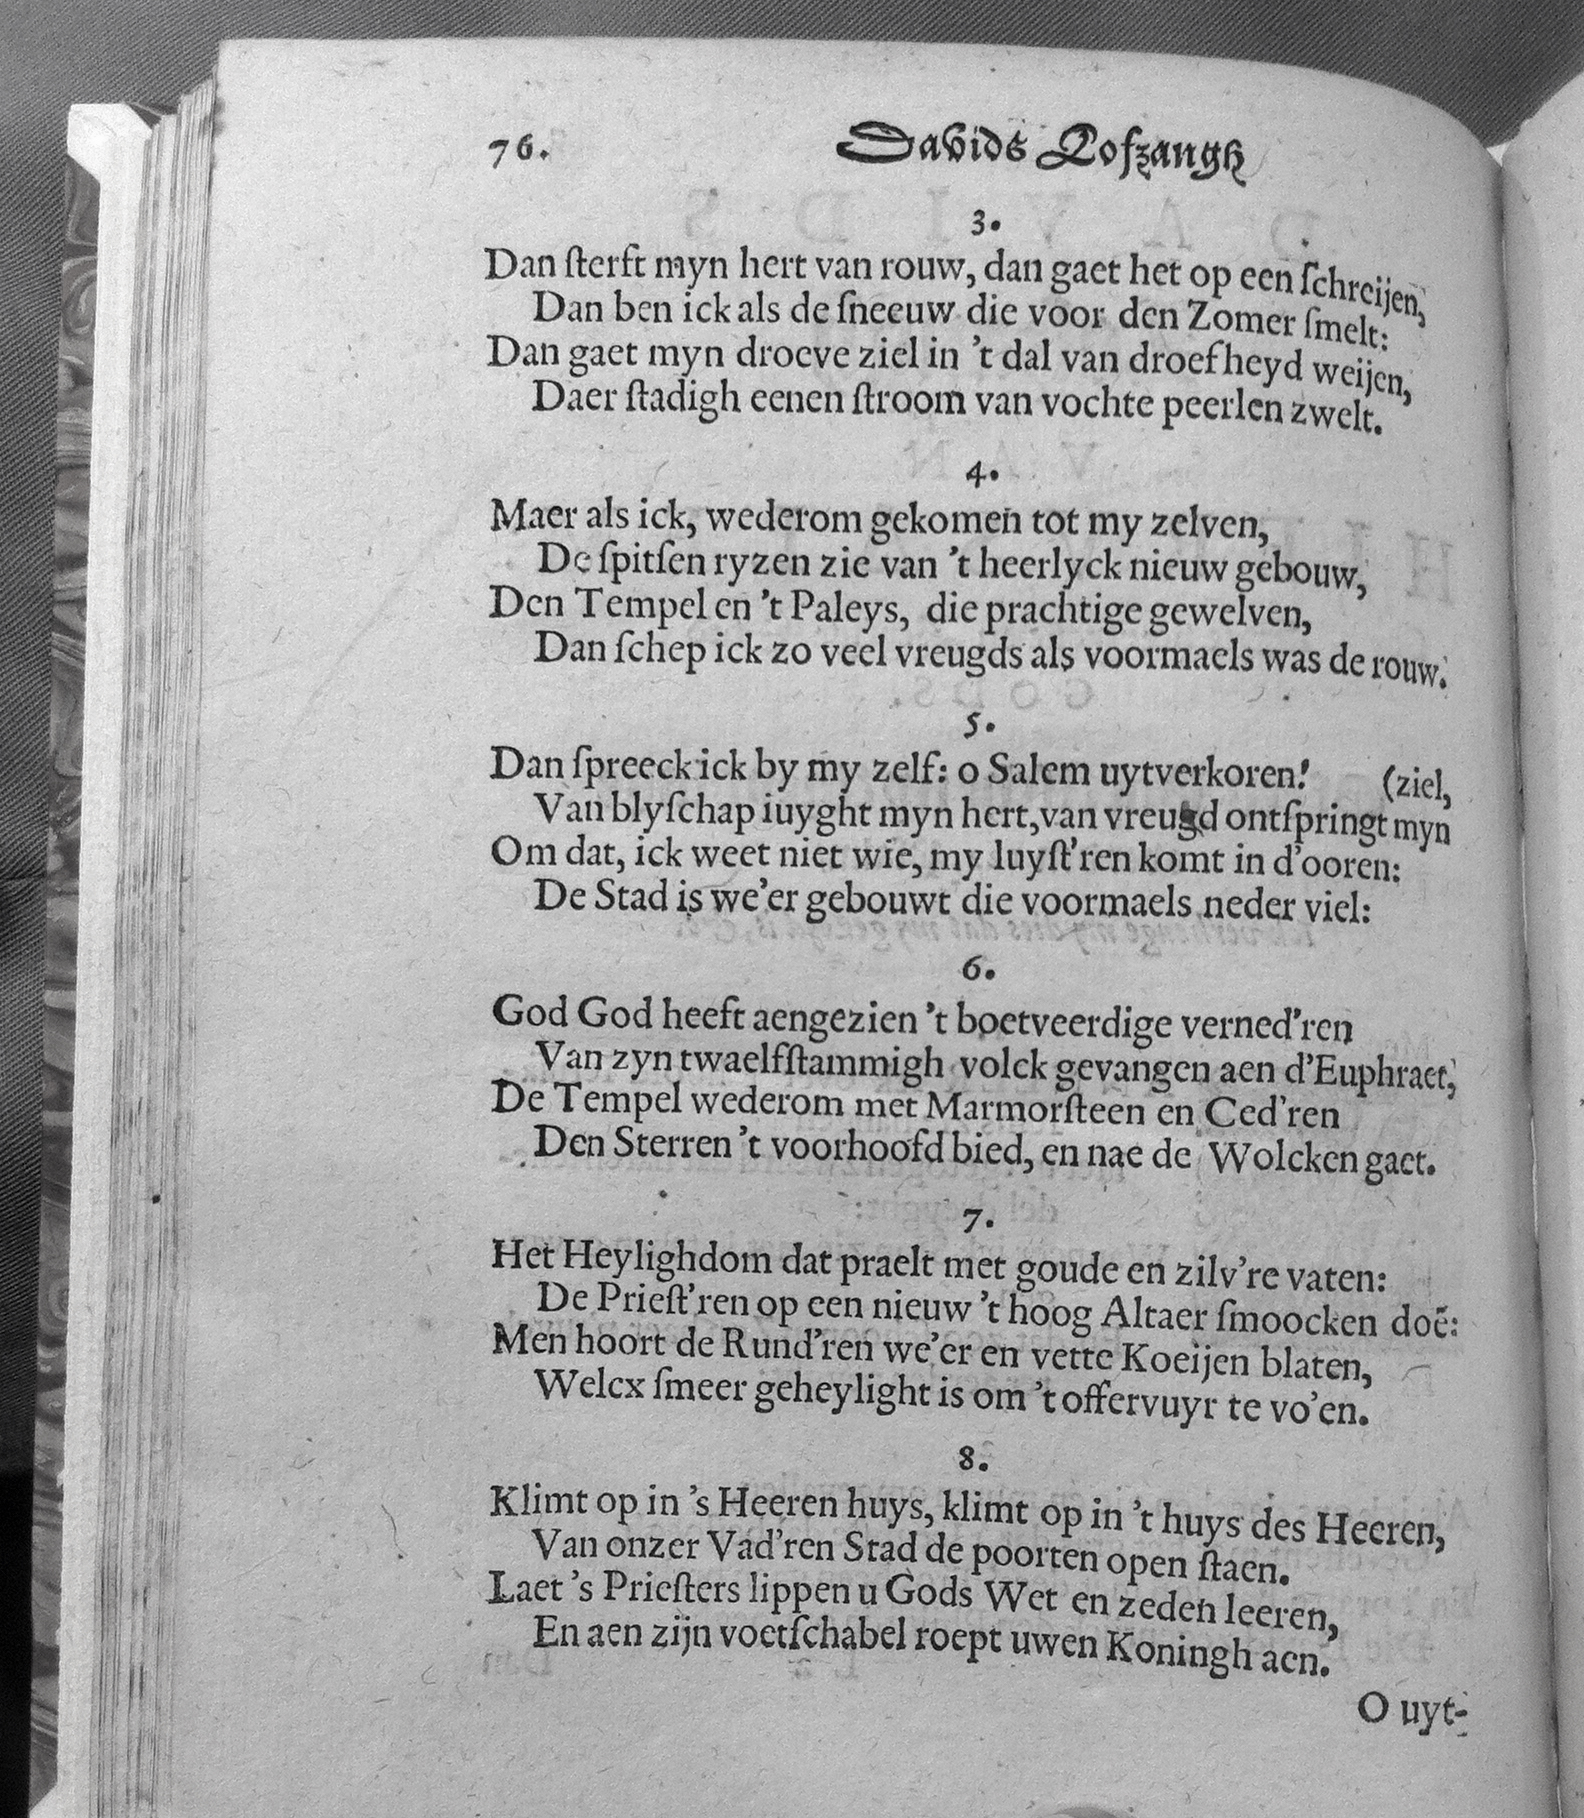 76. Davids Lofzangh
3.
Dan ſterft myn hert van rouw, dan gaet het op een ſchreijen,
Dan ben ick als de ſneeuw die voor den Zomer ſmelt:
Dan gaet myn droeve ziel in 't dal van droefheyd weijen,
Daer ſtadigh eenen ſtroom van vochte peerlen zwelt.
4.
Maer als ick, wederom gekomen tot my zelven,
De ſpitſen ryzen zie van 't heerlyck nieuw gebouw,
Den Tempel en 't Paleys, die prachtige gewelven,
Dan ſchep ick zo veel vreugds als voormaels was de rouw.
5.
Dan ſpreeck ick by my zelf: o Salem uytverkoren! (ziel,
Van blyſchap iuyght myn hert, van vreugd ontſpringt myn
Om dat, ick weet niet wie, my luyſt'ren komt in d'ooren:
De Stad is we'er gebouwt die voormaels neder viel:
6.
God God heeft aengezien 't boetveerdige verned'ren
Van zyn twaelfſtammigh volck gevangen aen d'Euphraet,
De Tempel wederom met Marmorſteen en Ced'ren
Den Sterren 't voorhoofd bied, en nae de Wolcken gaet.
7.
Het Heylighdom dat praelt met goude en zilv're vaten:
De Prieſt'ren op een nieuw 't hoog Altaer ſmoocken doē:
Men hoort de Rund'ren we'er en vette Koeijen blaten,
Welcx ſmeer geheylight is om 't offervuyr te vo'en.
8.
Klimt op in 's Heeren huys, klimt op in 't huys des Heeren,
Van onzer Vad'ren Stad de poorten open ſtaen.
Laet 's Prieſters lippen u Gods Wet en zeden leeren,
En aen zijn voetſchabel roept uwen Koningh aen.
O uyt-